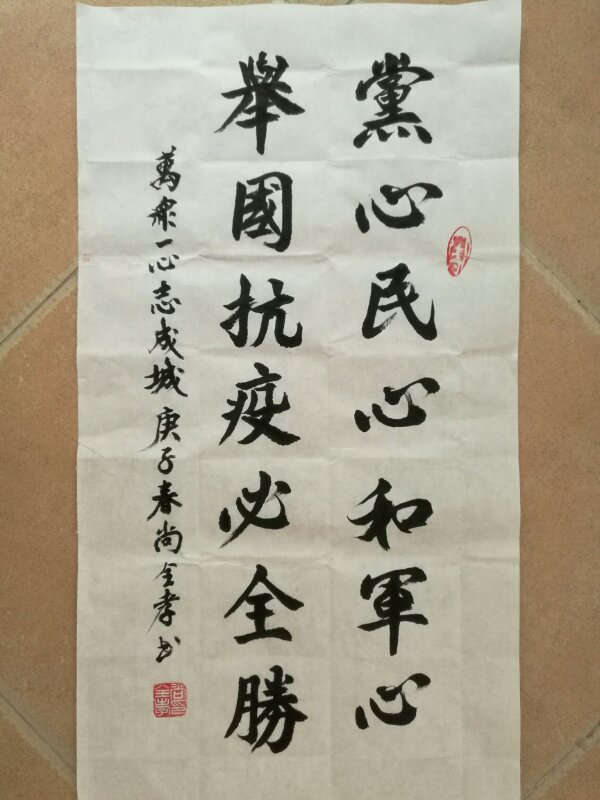 黨心民心和軍心
舉國抗疫必全勝
萬眾一心志成城 庚子春尚全孝书